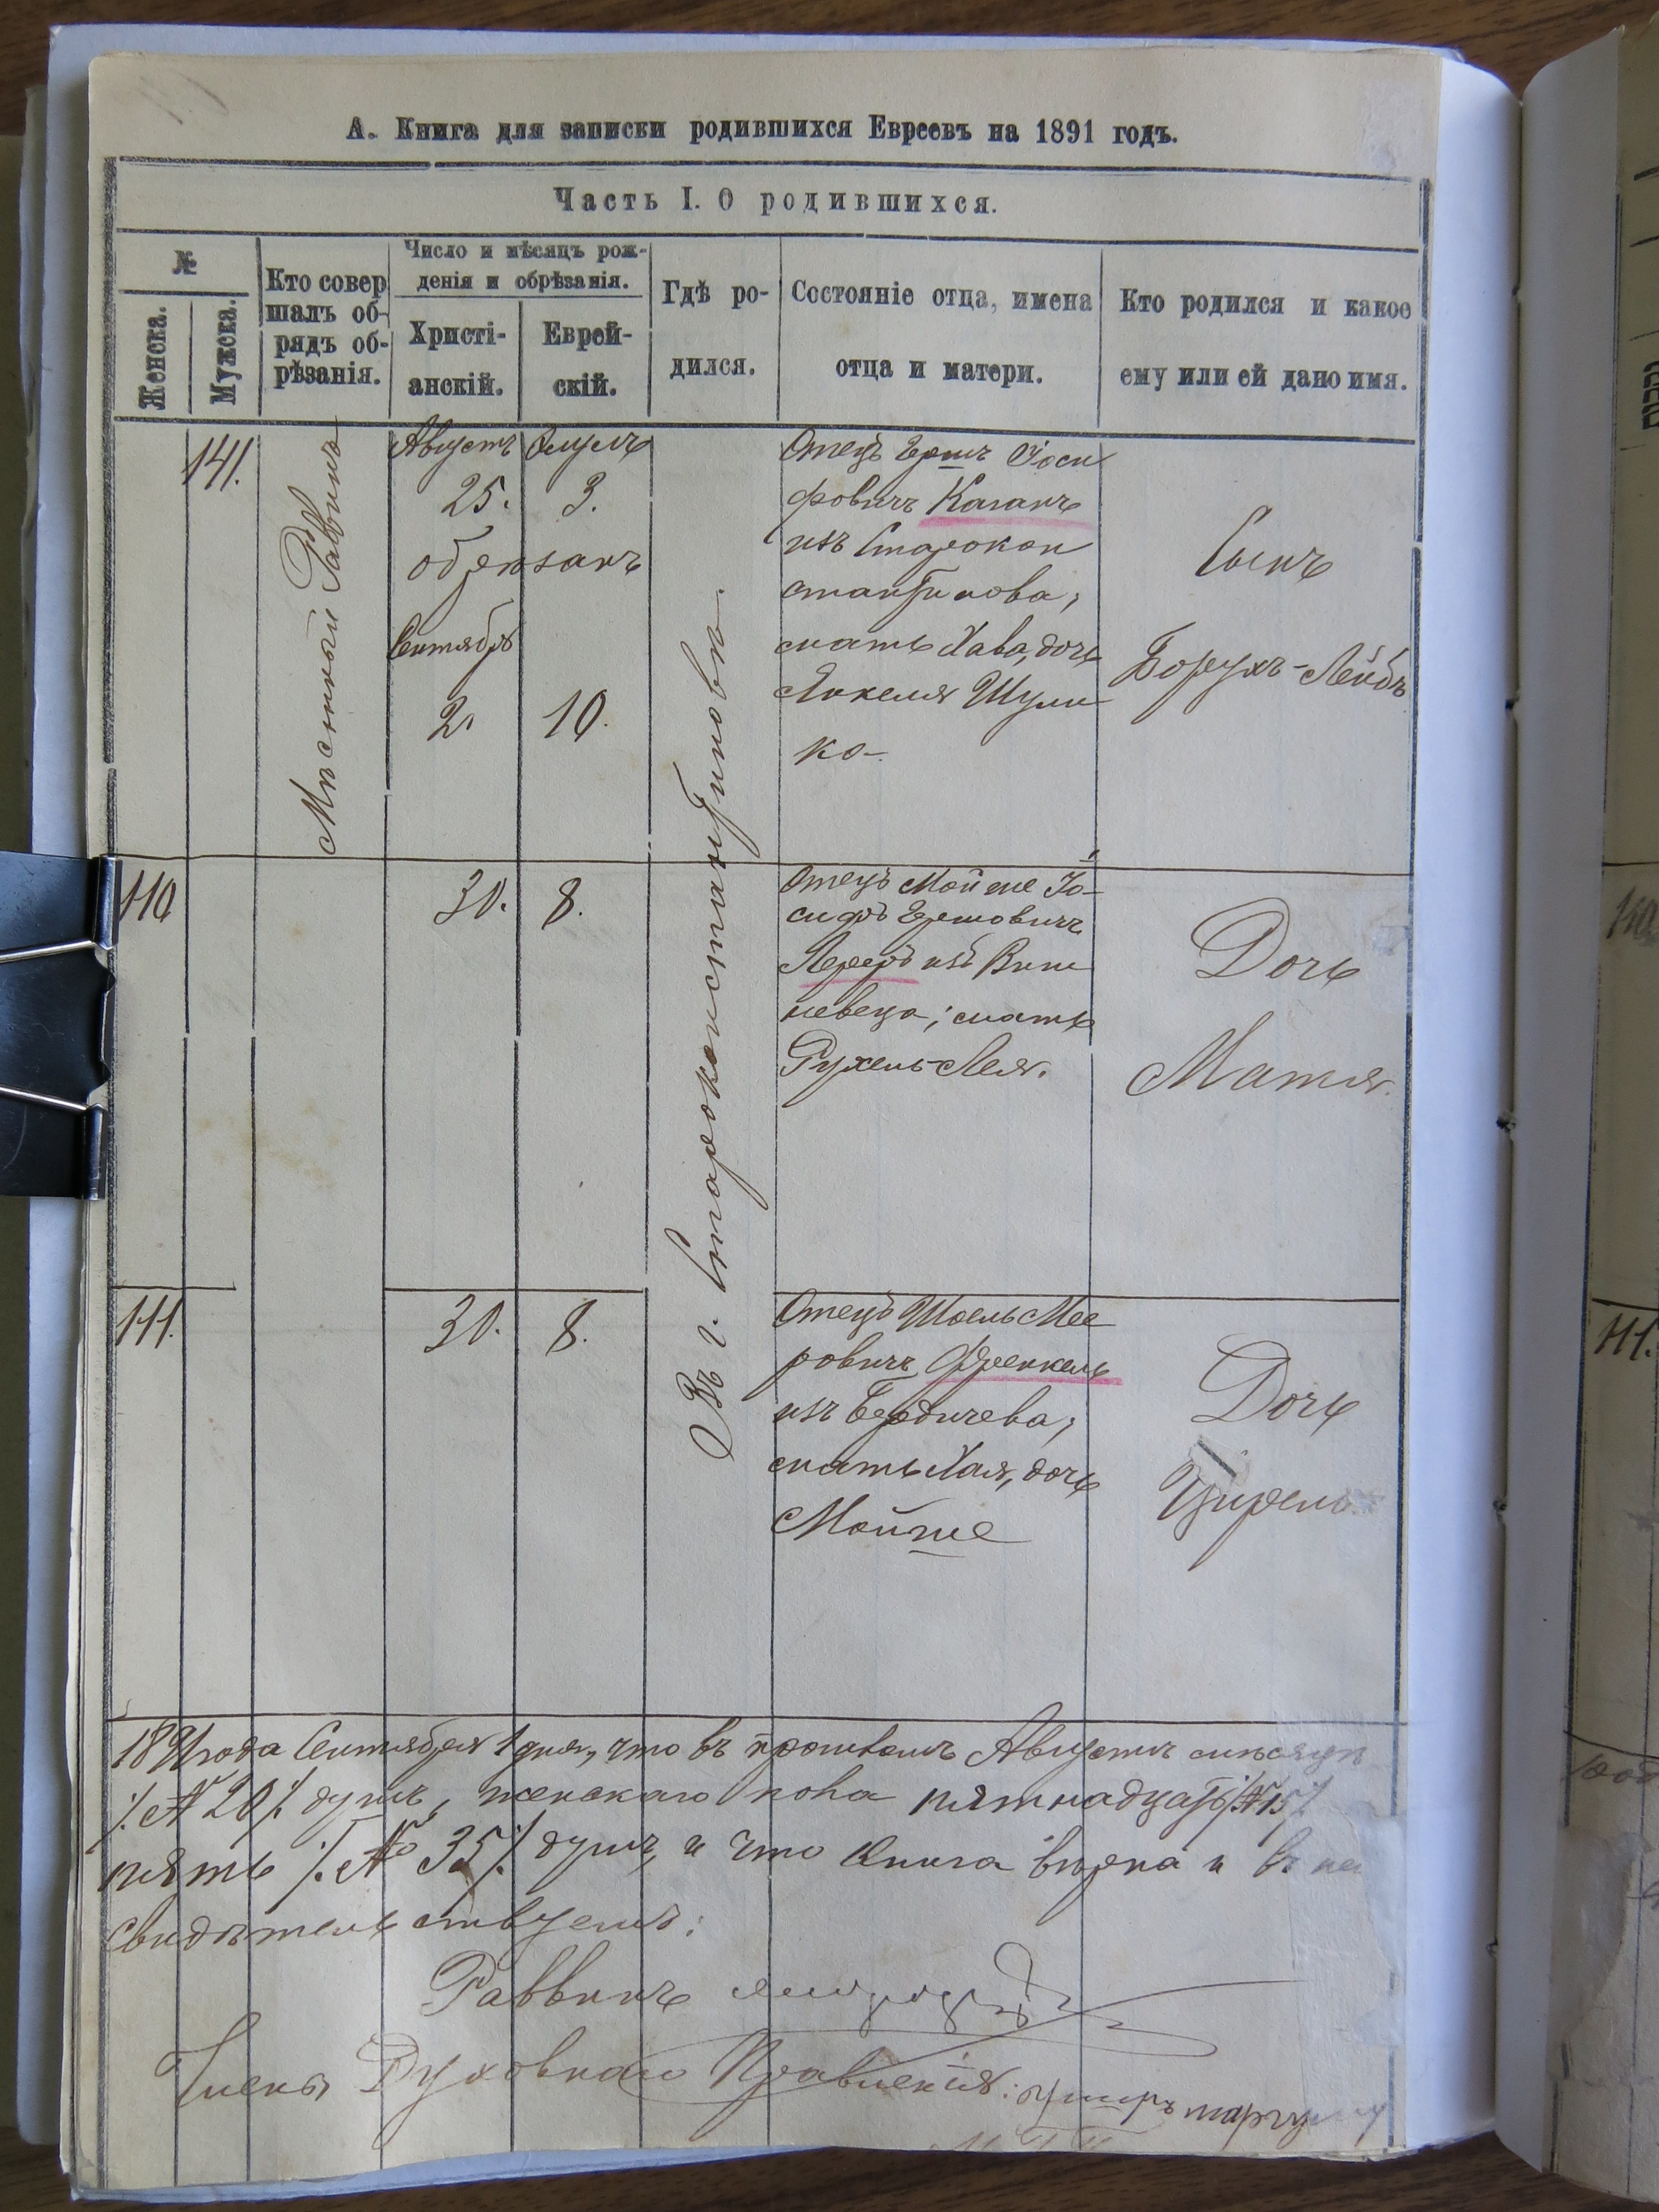 А. Книга для записки родившихся Евреевъ на 1891 годъ.
Часть I. О родившихся.
№
Женска.
Мужска.
Кто совер
шалъ об-
рядъ об-
рѣзанія.
Число и мѣсяцъ рож-
денія и обрѣзанія.
Христі-
анскій.
Еврей-
скій.
Гдѣ ро-
дился.
Состояніе отца, имена
отца и матери.
Кто родился и какое
ему или ей дано имя.
141.
Мѣстный Раввинъ
Августъ
25.
Элулъ
3.
обрѣзанъ
Сентябрь
2.
10.
Въ г. Староконстантиновѣ.
Отецъ Гершъ Іоси
фовичъ Каганъ
изъ Старокон
стантинова,
мать Хава, дочь
Янкеля Шули
ко-
Сынъ
Борухъ-Лейбъ
110
30.
8.
Отецъ Мойше Іо-
сифъ Гершовичъ
Лереръ изъ Виш
невеца; мать
Рухель-Лея.
Дочь
Матля.
111.
30.
8.
Отецъ Шоель Мее
ровичъ Френкель
изъ Бердичева,
мать Хая, дочь
Мойше
Дочь
Цирель.
1891 года Сентября 1 дня, что въ прошломъ Августѣ мѣсяцѣ
/.№ 20/. душъ, женскаго пола пятнадцать /.№ 15/.
пять /.№ 35/. душъ, и что книга вѣрна и въ
свидѣтельствуемъ:
Раввинъ
Члены Духовнаго Правленія:
110
111.